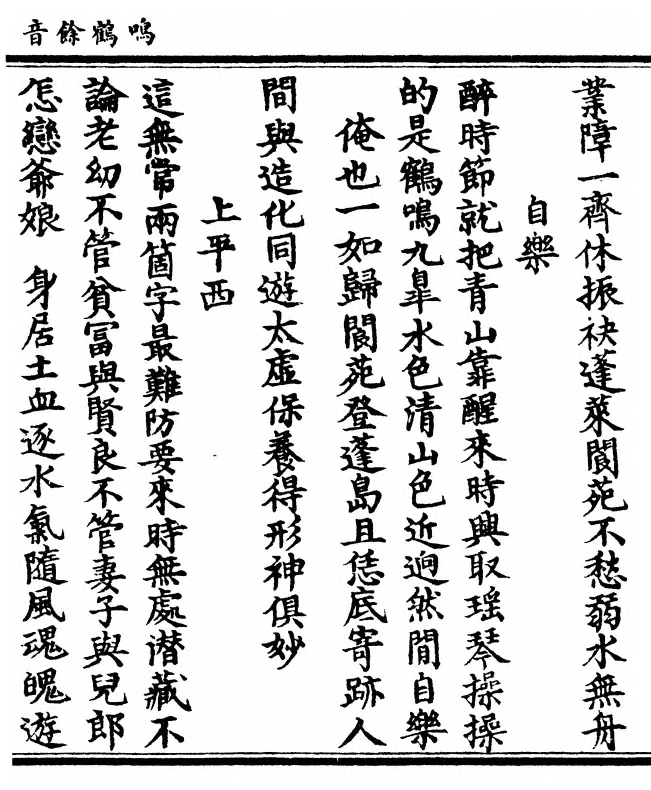 鳴鶴餘音
業障一齊休振袂蓬萊閬苑不愁弱水無舟
自樂
醉時節就把青山靠醒來時興取瑶琴操操
的是鶴鳴九皐水色清山色近逈然閒自樂
俺也一如歸閬苑登蓬島且恁底寄跡人
間與造化同遊太虛保養得形神俱妙
上平西
這無常兩箇字最難防要來時無處潜藏不
論老幼不管貧冨與賢良不管妻子與兒郎
怎戀爺娘 身居土血逐水氣隨風魂魄遊